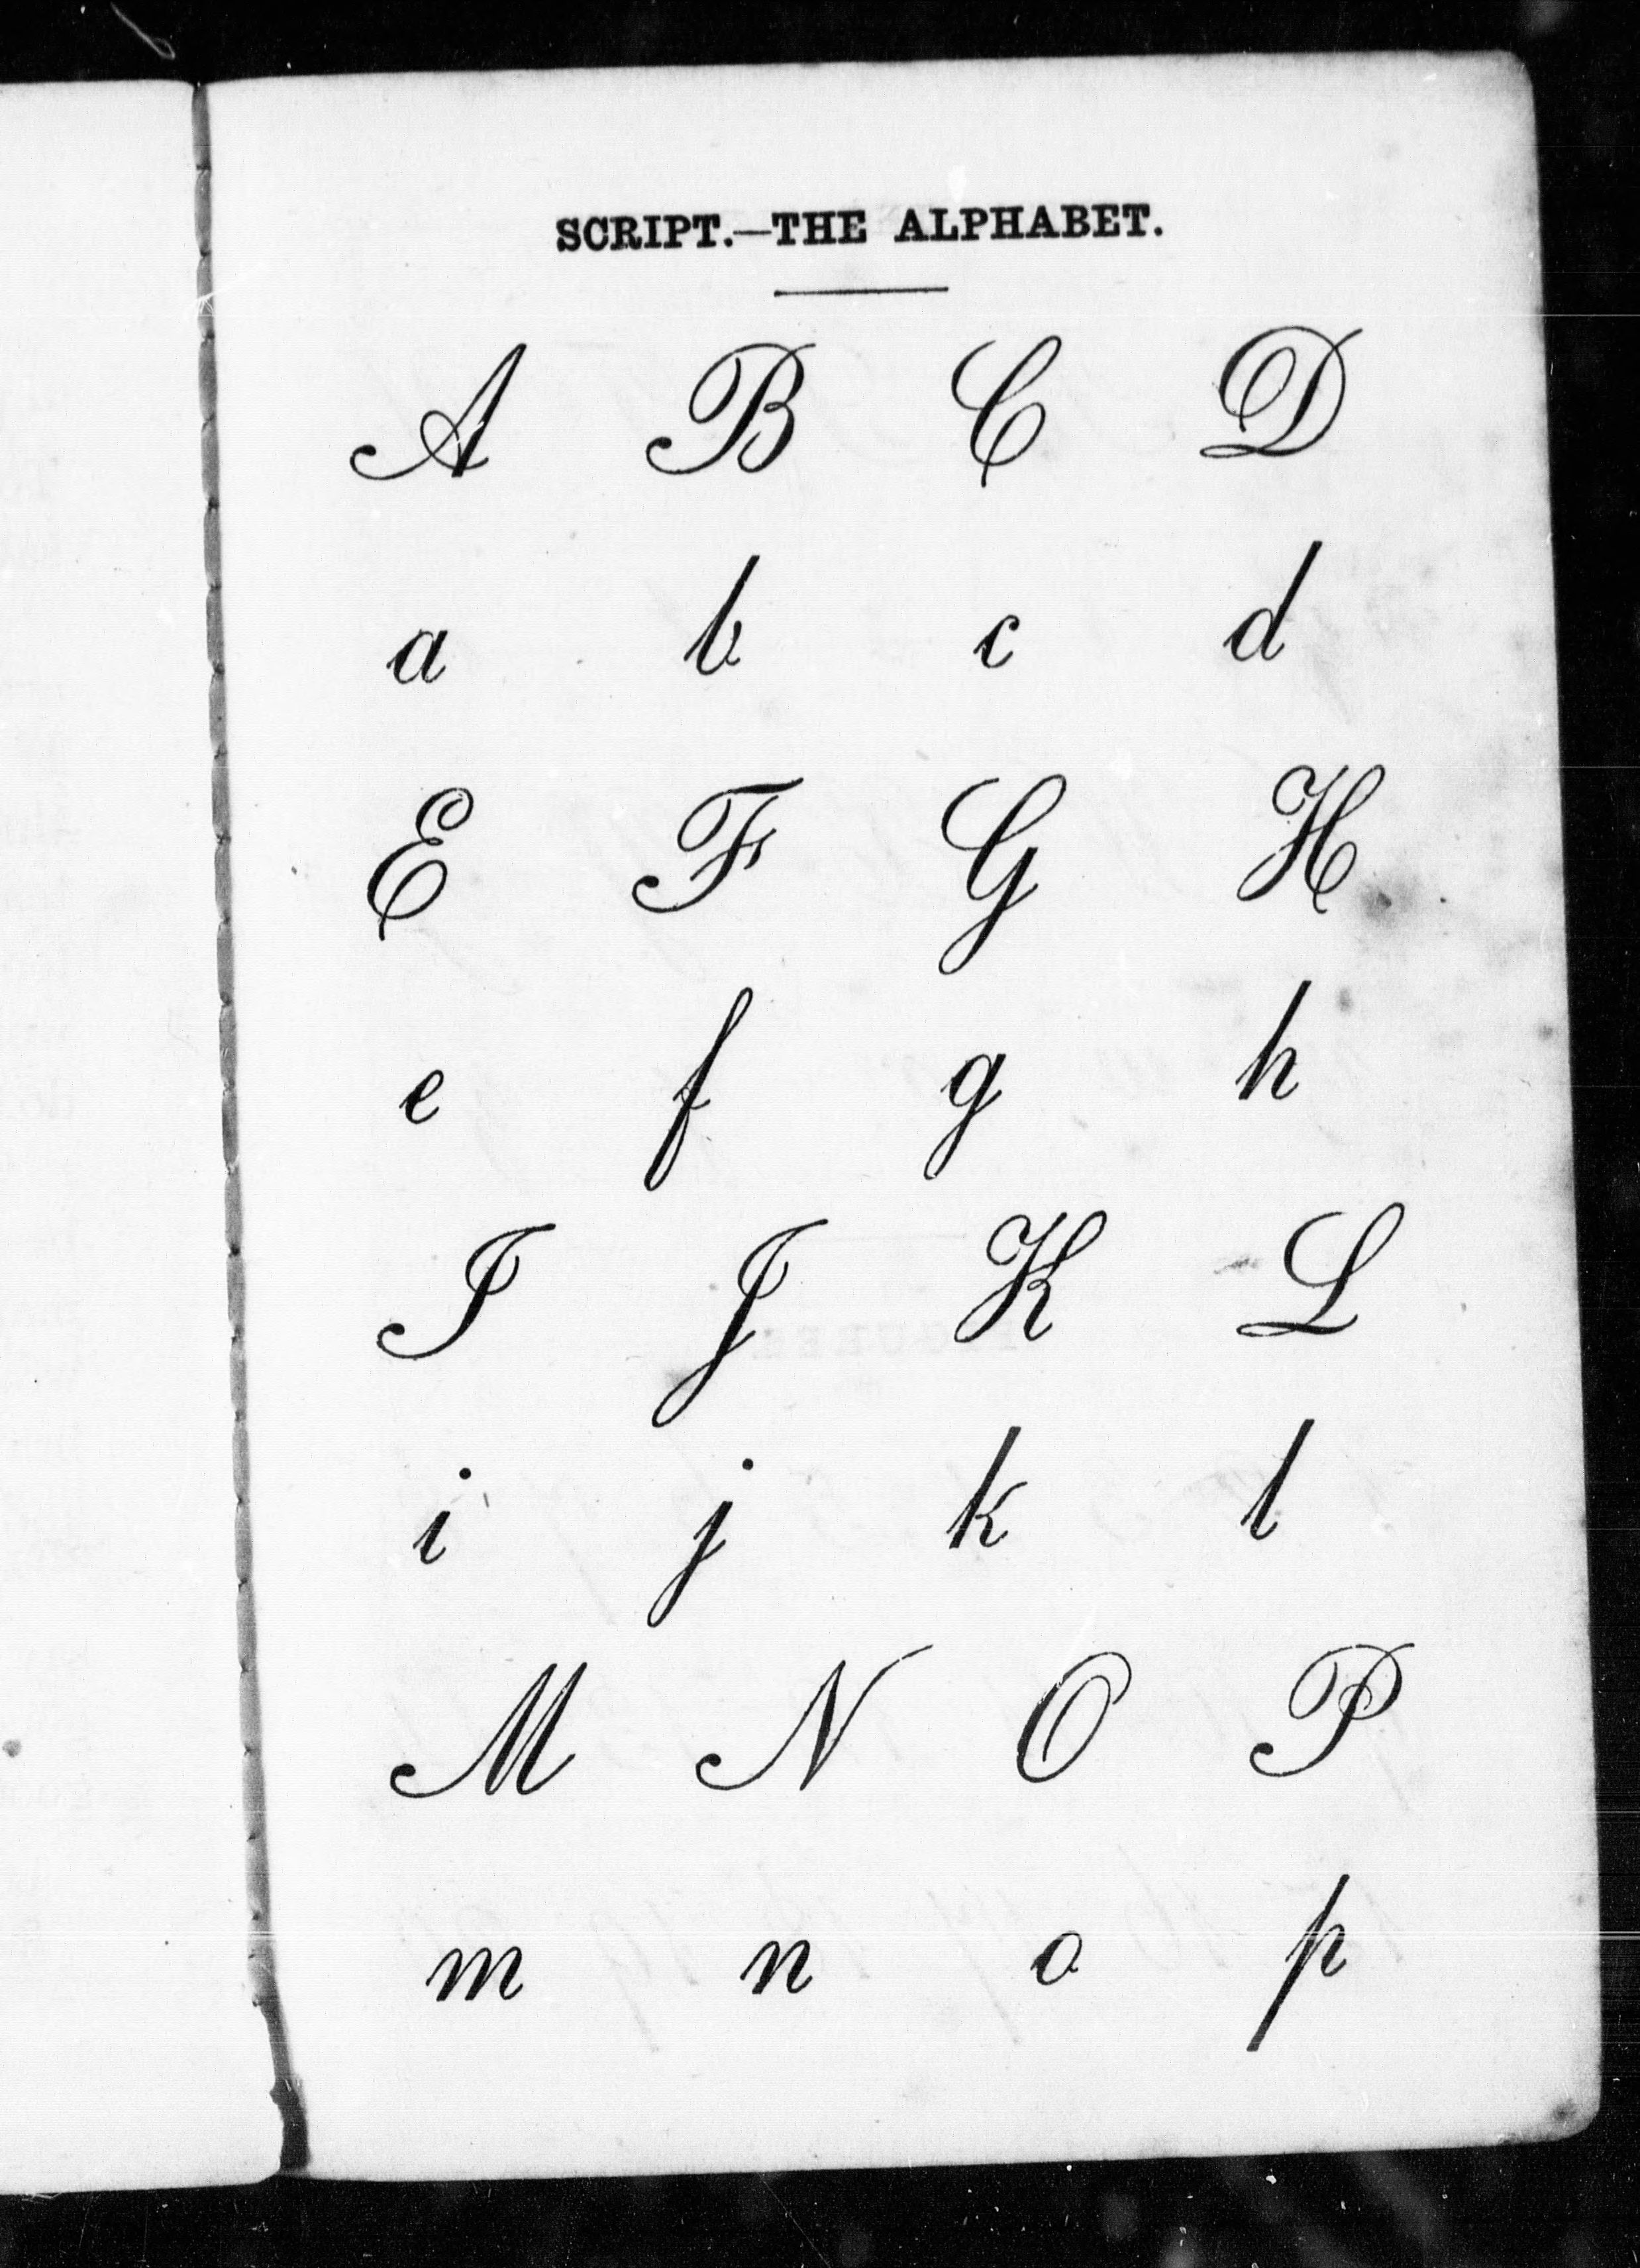 SCRIPT.—THE ALPHABET.
A B C D
a b c d
E F G H
e f g h
I J K L
i j k l
M N O P
m n o p